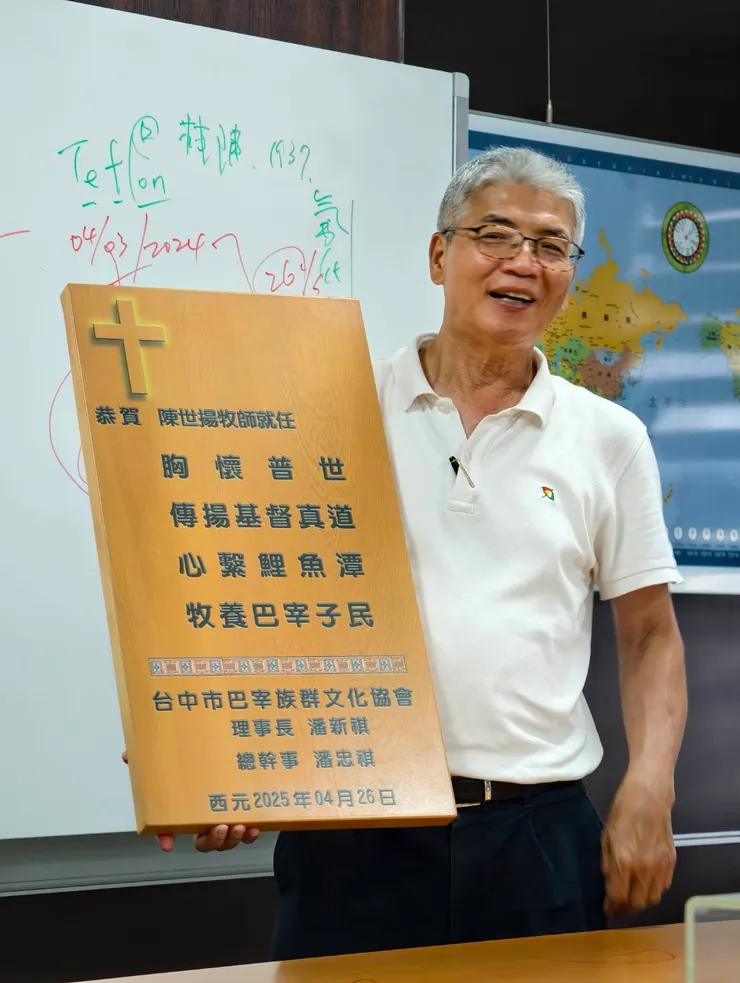 Teflon®
陳、1937、
04/03/2024
264/5
恭賀 陳世揚牧師就任
胸懷普世
傳揚基督真道
心繫鯉魚潭
牧養巴宰子民
台中市巴宰族群文化協會
理事長 潘新祺
總幹事 潘忠祺
西元2025年04月26日
太平洋